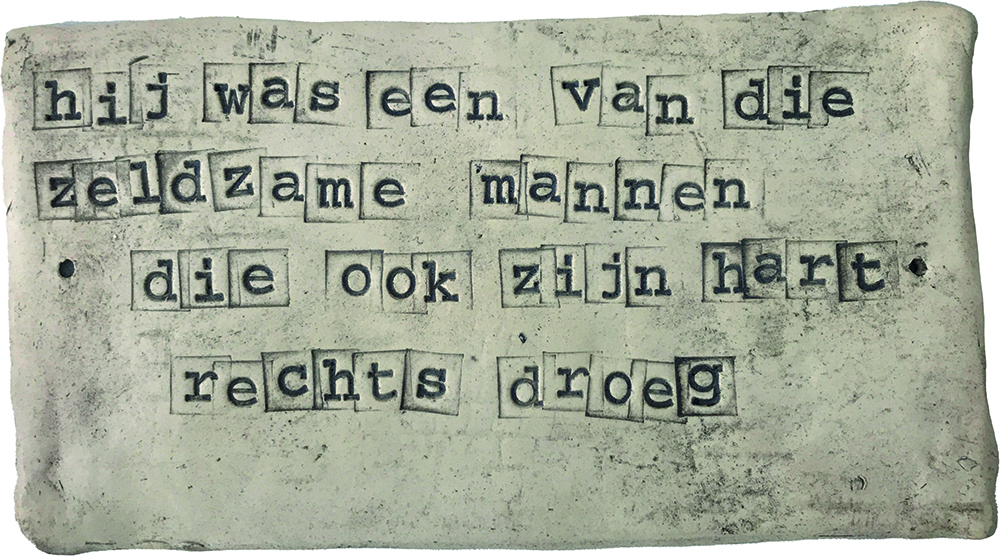 hij was een van die
zeldzame mannen
die ook zijn hart
rechts droeg